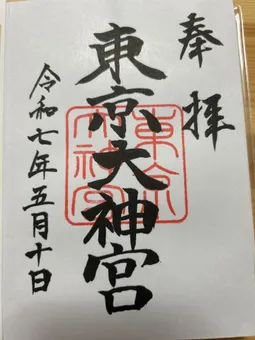 奉拝
東京大神宮
令和七年五月十日
東京大神宮